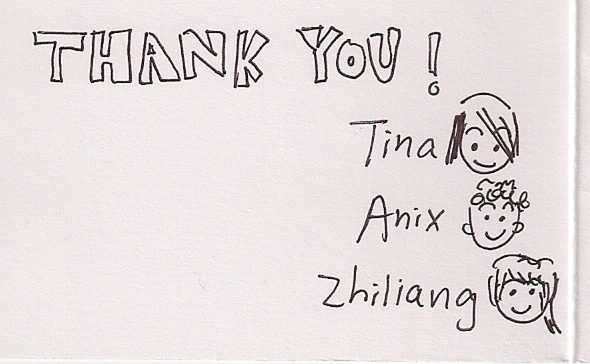 THANK YOU!
Tina
Anix
Zhiliang